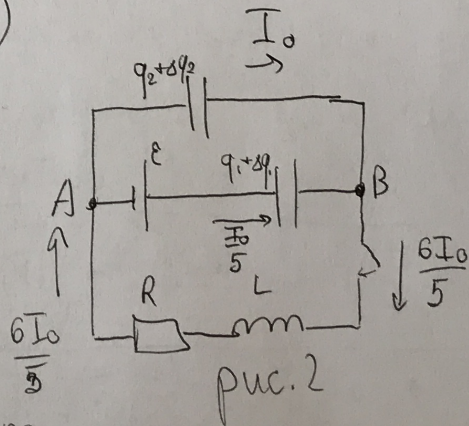 I₀
q₂+Δq₂
ε
q₁+Δq₁
A
B
I₀/5
6I₀/5
R
L
6I₀/5
рис. 2